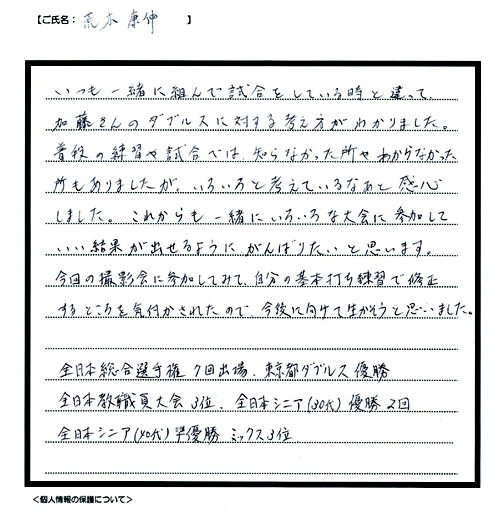 【ご氏名： 荒木 康伸 】
いつも一緒に組んで試合をしている時と違って、
加藤さんのダブルスに対する考え方がわかりました。
普段の練習や試合では、知らなかった所やわからなかった
所もありましたが、いろいろと考えているなあと感心
しました。これからも一緒にいろいろな大会に参加して
いい結果が出せるようにがんばりたいと思います。
今回の撮影会に参加してみて、自分の基本打ち練習で修正
するところを気付かされたので、今後に向けて生かそうと思いました。
全日本総合選手権 7回出場、東京都ダブルス優勝
全日本教職員大会 3位、全日本シニア(30代)優勝 2回
全日本シニア(40代)準優勝 ミックス3位
＜個人情報の保護について＞